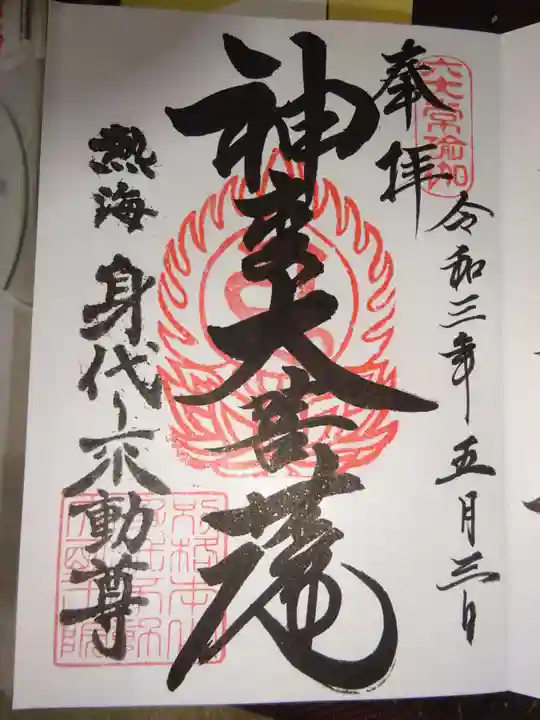 六大常瑜伽
奉拝
令和三年五月三日
神変大菩薩
熱海
身代り不動尊